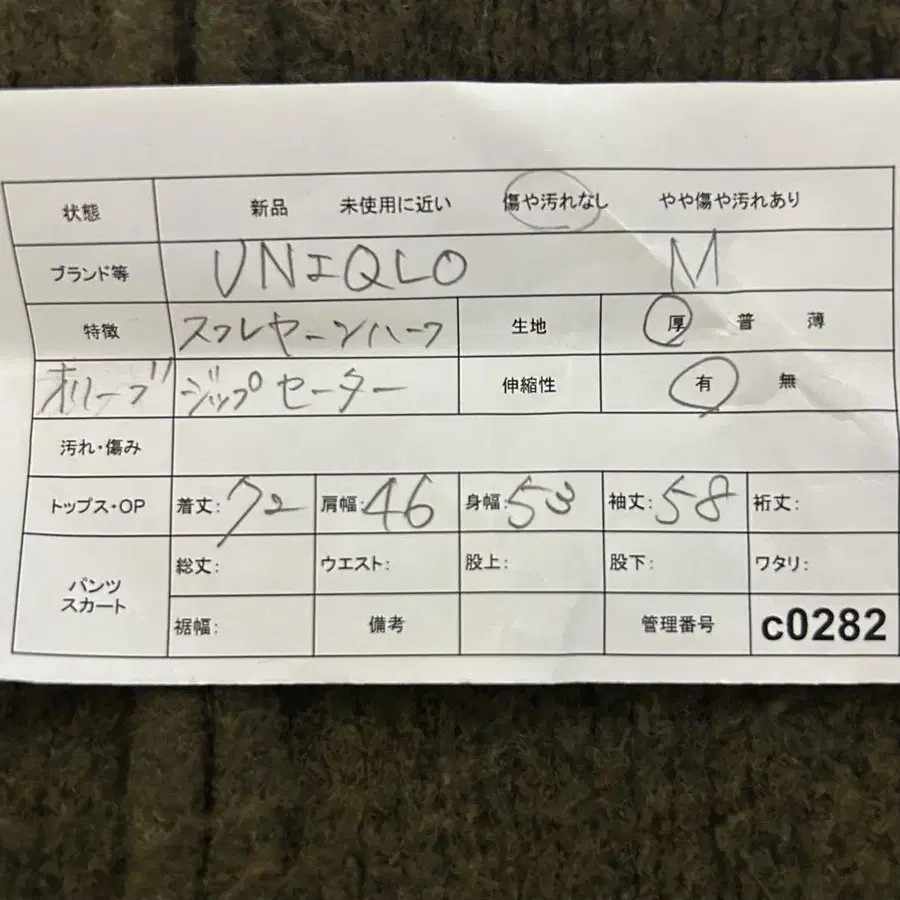 状態 新品 未使用に近い 傷や汚れなし やや傷や汚れあり
ブランド等 UNIQLO M
特徴 スフレヤーンハーフ 生地 厚 普 薄
オリーブ ジップセーター 伸縮性 有 無
汚れ・傷み
トップス・OP 着丈: 72 肩幅: 46 身幅: 53 袖丈: 58 裄丈:
パンツ スカート 総丈: ウエスト: 股上: 股下: ワタリ:
裾幅: 備考 管理番号 c0282